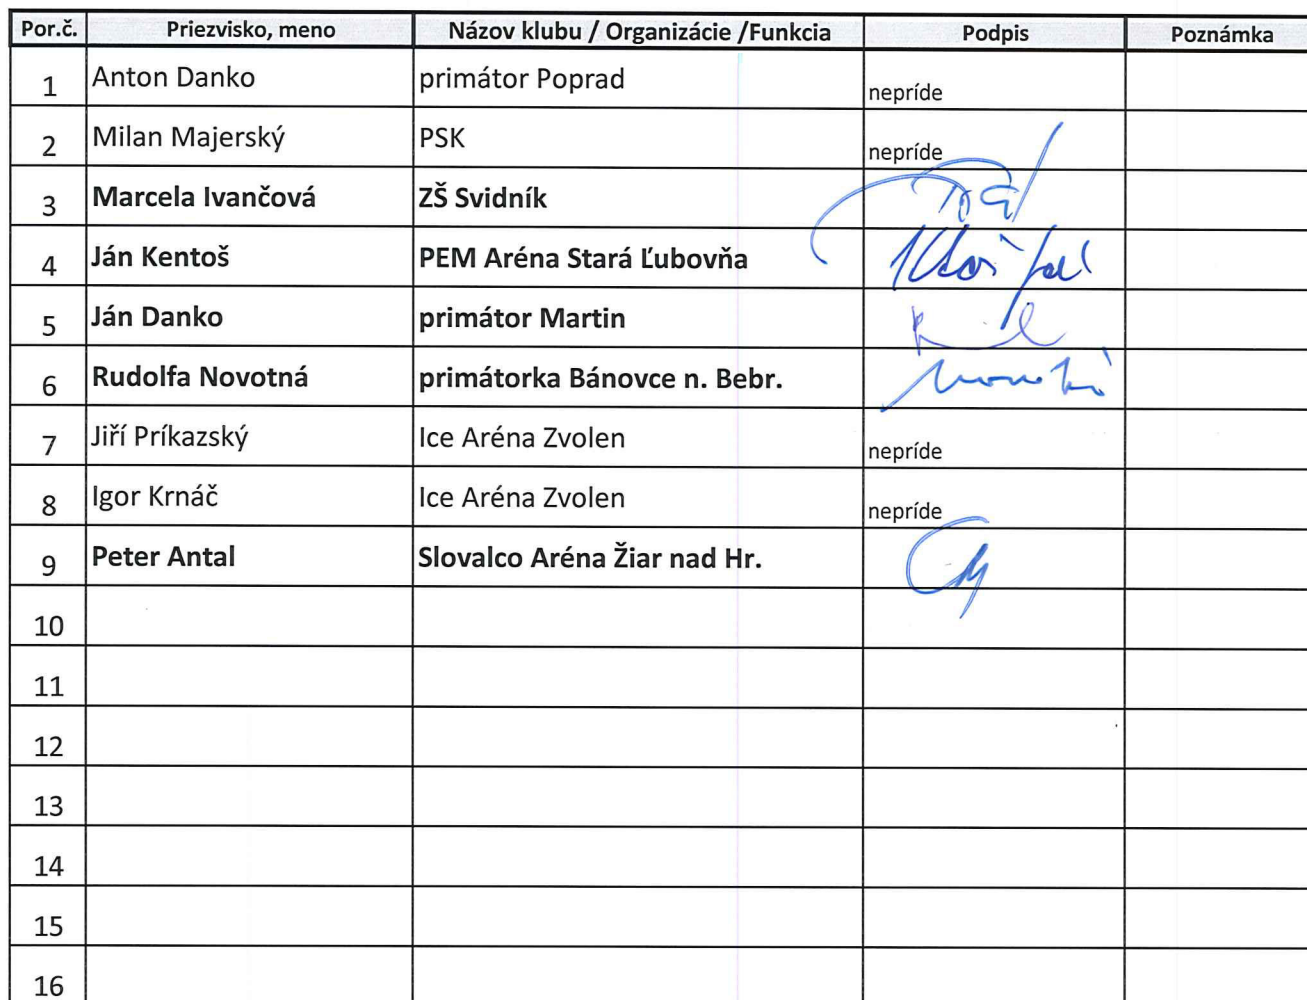 Por.č. Priezvisko, meno Názov klubu / Organizácie /Funkcia Podpis Poznámka
1 Anton Danko primátor Poprad nepríde
2 Milan Majerský PSK nepríde
3 Marcela Ivančová ZŠ Svidník
4 Ján Kentoš PEM Aréna Stará Ľubovňa
5 Ján Danko primátor Martin
6 Rudolfa Novotná primátorka Bánovce n. Bebr.
7 Jiří Príkazský Ice Aréna Zvolen nepríde
8 Igor Krnáč Ice Aréna Zvolen nepríde
9 Peter Antal Slovalco Aréna Žiar nad Hr.
10
11
12
13
14
15
16